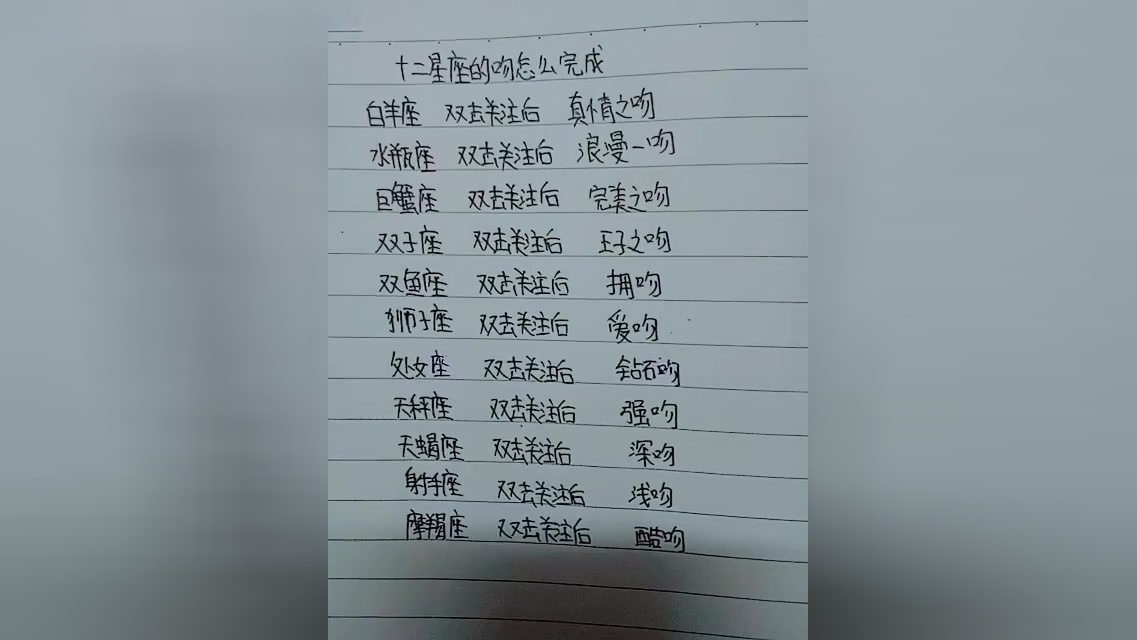 十二星座的吻怎么完成
白羊座 双击关注后 真情之吻
水瓶座 双击关注后 浪漫一吻
巨蟹座 双击关注后 完美之吻
双子座 双击关注后 王子之吻
双鱼座 双击关注后 拥吻
狮子座 双击关注后 爱吻
处女座 双击关注后 钻石吻
天秤座 双击关注后 强吻
天蝎座 双击关注后 深吻
射手座 双击关注后 浅吻
摩羯座 双击关注后 酷吻